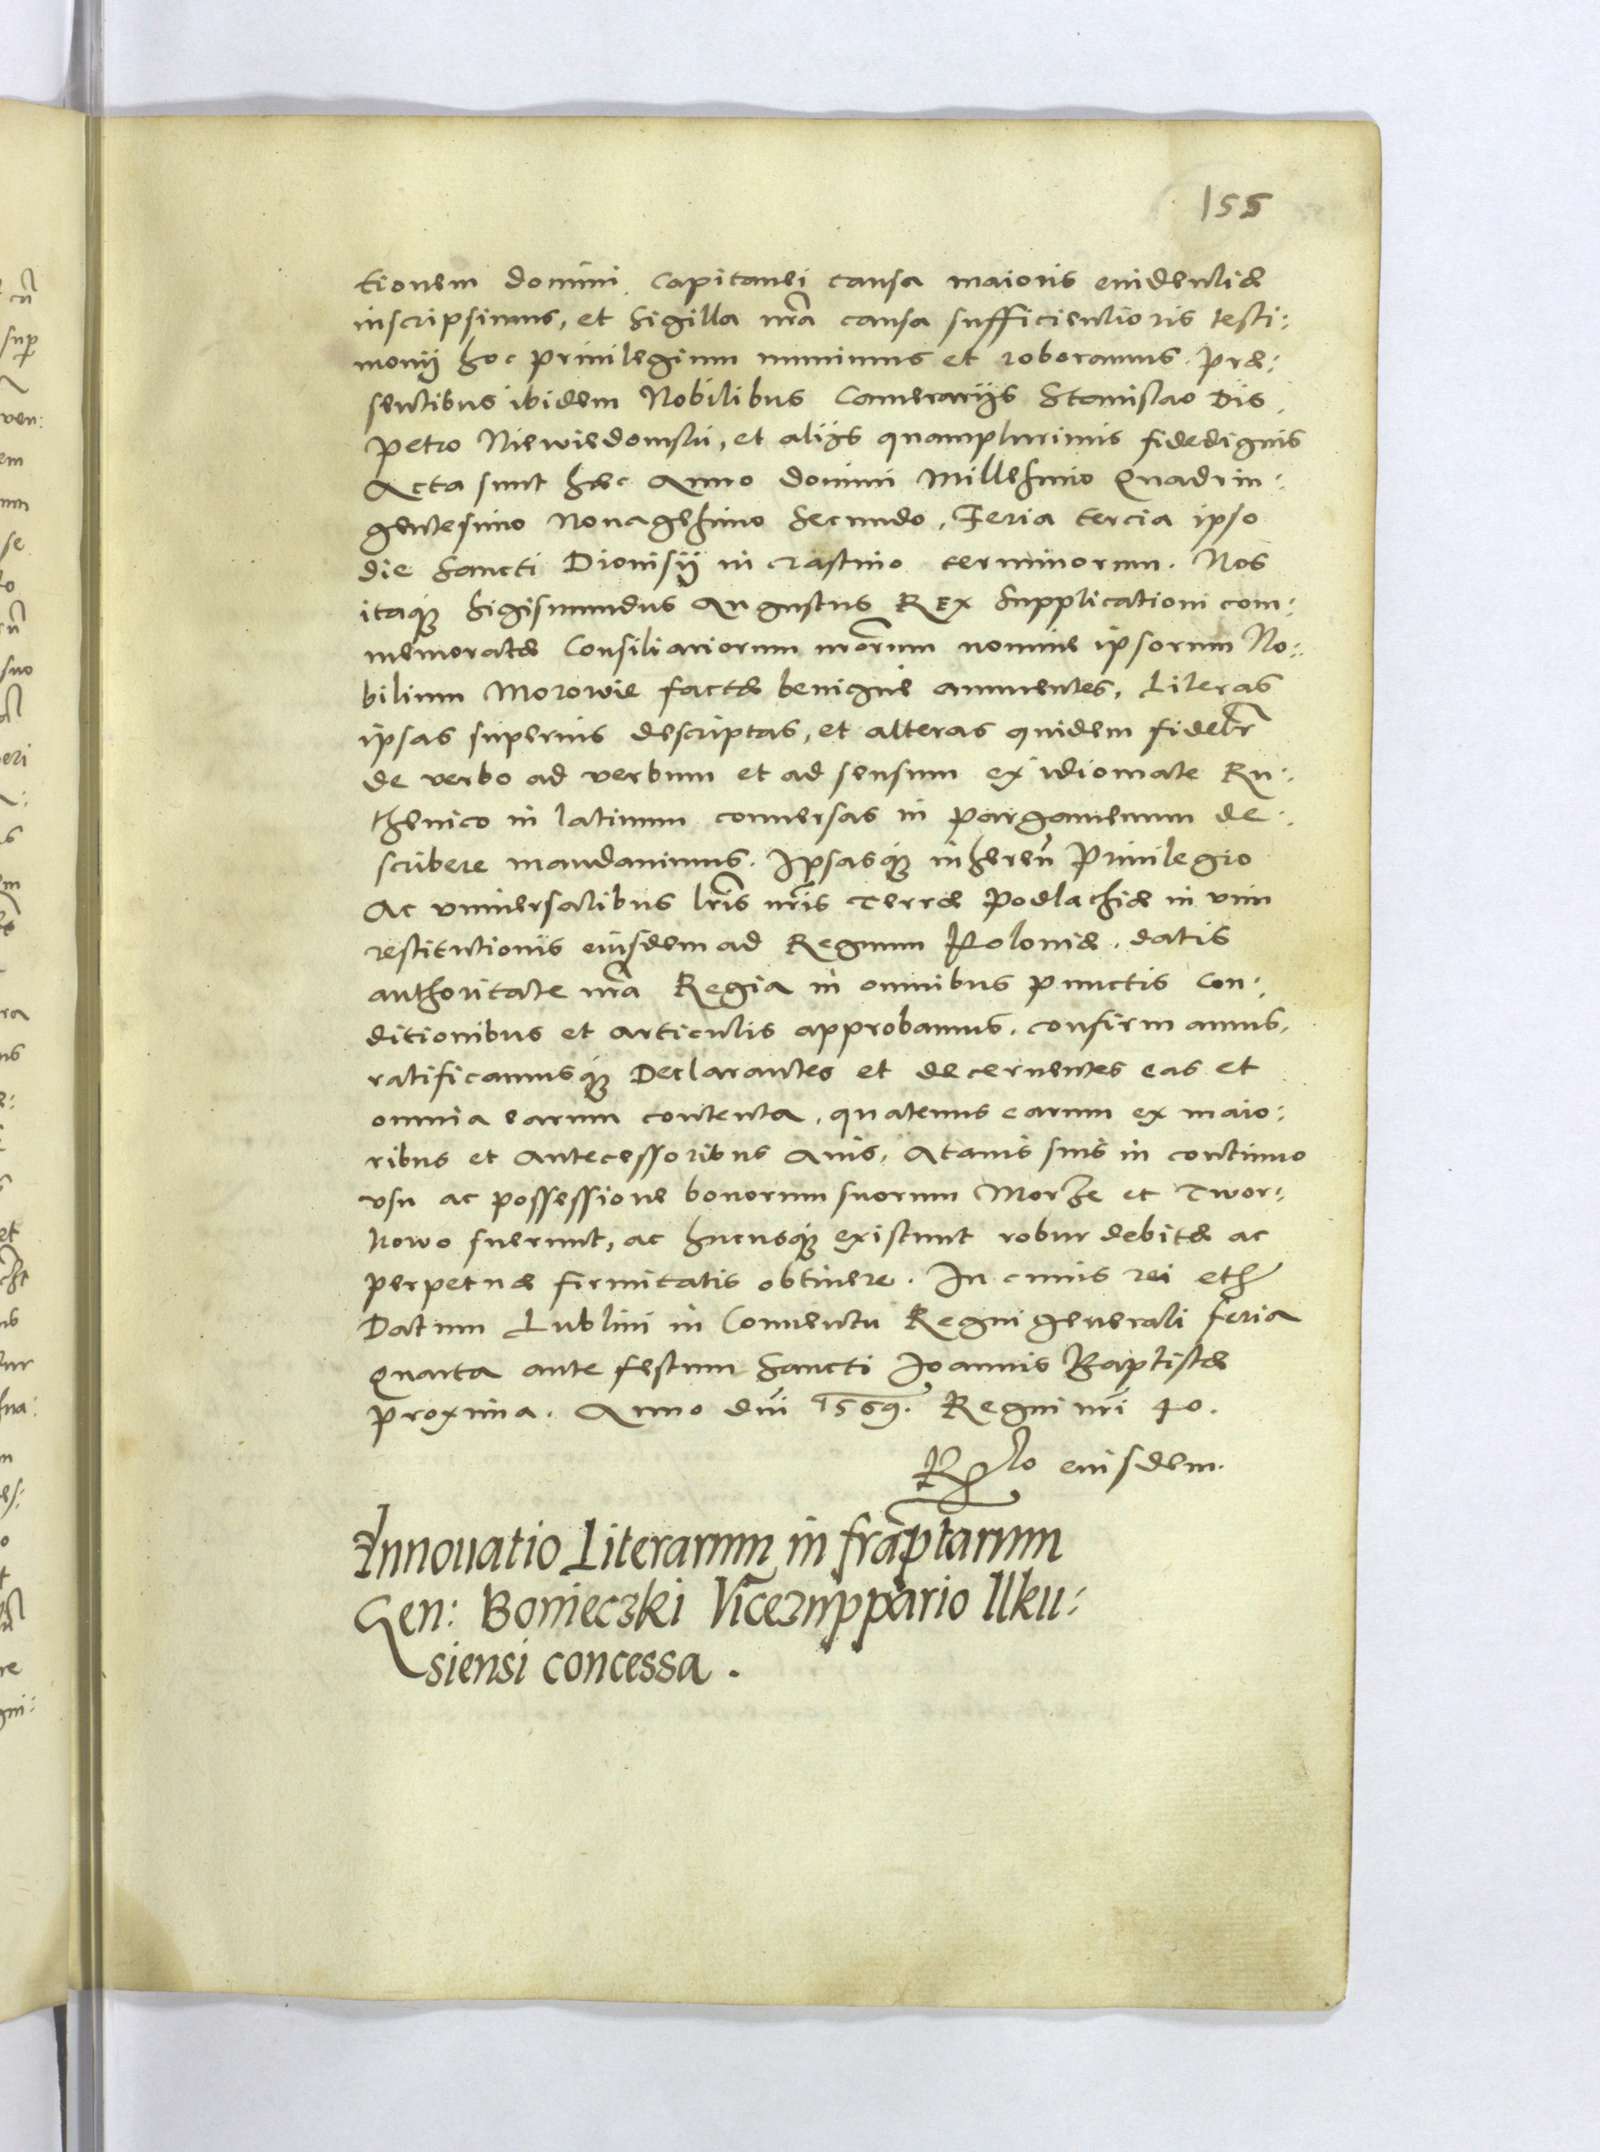 155
tionem domini Capitanei causa maioris euidentiæ
inscripsimus, et Sigilla nr̃a causa sufficientioris testi:
monij hoc priuilegium muniuimus et roboramus. Præ:
sentibus ibidem Nobilibus Camerarijs Stanislao Dis,
Petro Niewiedomski, et alijs quamplurimis fidedignis
Acta sunt hæc Anno Domini Millesimo Quadrin:
gentesimo Nonagesimo Secundo, Feria tercia ipso
die Sancti Dionisij in crastino terminorum. Nos
itaq; Sigismundus Augustus Rex Supplicationi com:
memoratæ Consiliariorum nr̃orum nomine ipsorum No:
bilium Morowie factæ benignè annuentes, Literas
ipsas superius descriptas, et alteras quidem fidelr̃
de verbo ad verbum et ad sensum ex idiomate Ru:
thenico in latinum conuersas in pargamenum de:
scribere mandauimus. Ipsasq; inheren̄ Priuilegio
Ac vniuersalibus lr̃is nr̃is Terræ Podlachiæ in vim
restitutionis eiusdem ad Regnum Poloniæ. datis
authoritate nr̃a Regia in omnibus punctis Con:
ditionibus et articulis approbamus. confirmamus,
ratificamusq; Declarantes et decernentes eas et
omnia earum contenta, quatenus earum ex maio:
ribus et Antecessoribus Auis, Atauis suis in continuo
vsu ac possessione bonorum suorum Morze et Twor:
kowo fuerunt, ac hucusq; existunt robur debitæ ac
perpetuæ firmitatis obtinere. In cuius rei etc̃
Datum Lublini in Conuentu Regni generali feria
Quarta ante festum Sancti Ioannis Baptistæ
proxima. Anno dni 1569. Regni nr̃i 40.
R̃lo eiusdem.
Innouatio Literarum infrãptarum
Gen: Bonieczki Vicezuppario Ilku:
siensi concessa.